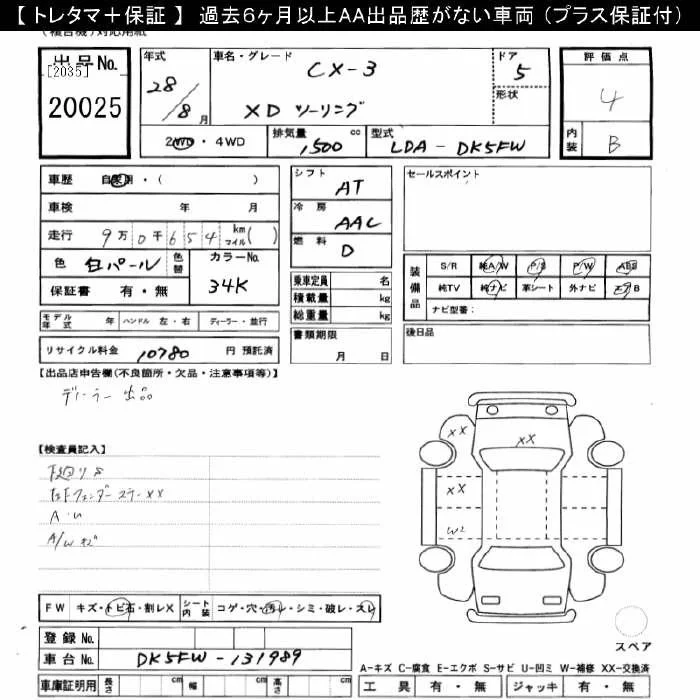 【 トレタマ＋保証 】 過去6ヶ月以上AA出品歴がない車両（プラス保証付）
（複合機）対応用紙
出品No. [2035] 20025
年式 28/8月
車名・グレード CX-3 XD ツーリング
ドア 5
形状
評価点 4
内装 B
2WD ・ 4WD
排気量 1,500 cc
型式 LDA - DK5FW
車歴 自家用・( )
車検 年 月
走行 9万0千654 km マイル( )
色 白パール 色替 カラーNo. 34K
保証書 有・無
シフト AT
冷房 AAC
燃料 D
乗車定員 名
積載量 kg
総重量 kg
セールスポイント
装備品 S/R 純A/W P/S P/W ABS
純TV 純ナビ 革シート 外ナビ エアB
ナビ型番：
モデル年式 年 ハンドル 左・右 ディーラー・並行
書類期限 月 日
後日品
リサイクル料金 10780 円 預託済
【出品店申告欄(不良箇所・欠品・注意事項等)】
ディーラー出品
【検査員記入】
下廻りS
フェンダーステーXX
A・U
A/Wキズ
XX
XX
XX
W2
FW キズ・トビ石・割レX シート内装 コゲ・穴・汚レ・シミ・破レ・スレ
登録No.
車台No. DK5FW-131989
スペア
A-キズ C-腐食 E-エクボ S-サビ U-凹ミ W-補修 XX-交換済
車庫証明用 長さ cm 幅 cm 高さ cm
工具 有・無 ジャッキ 有・無